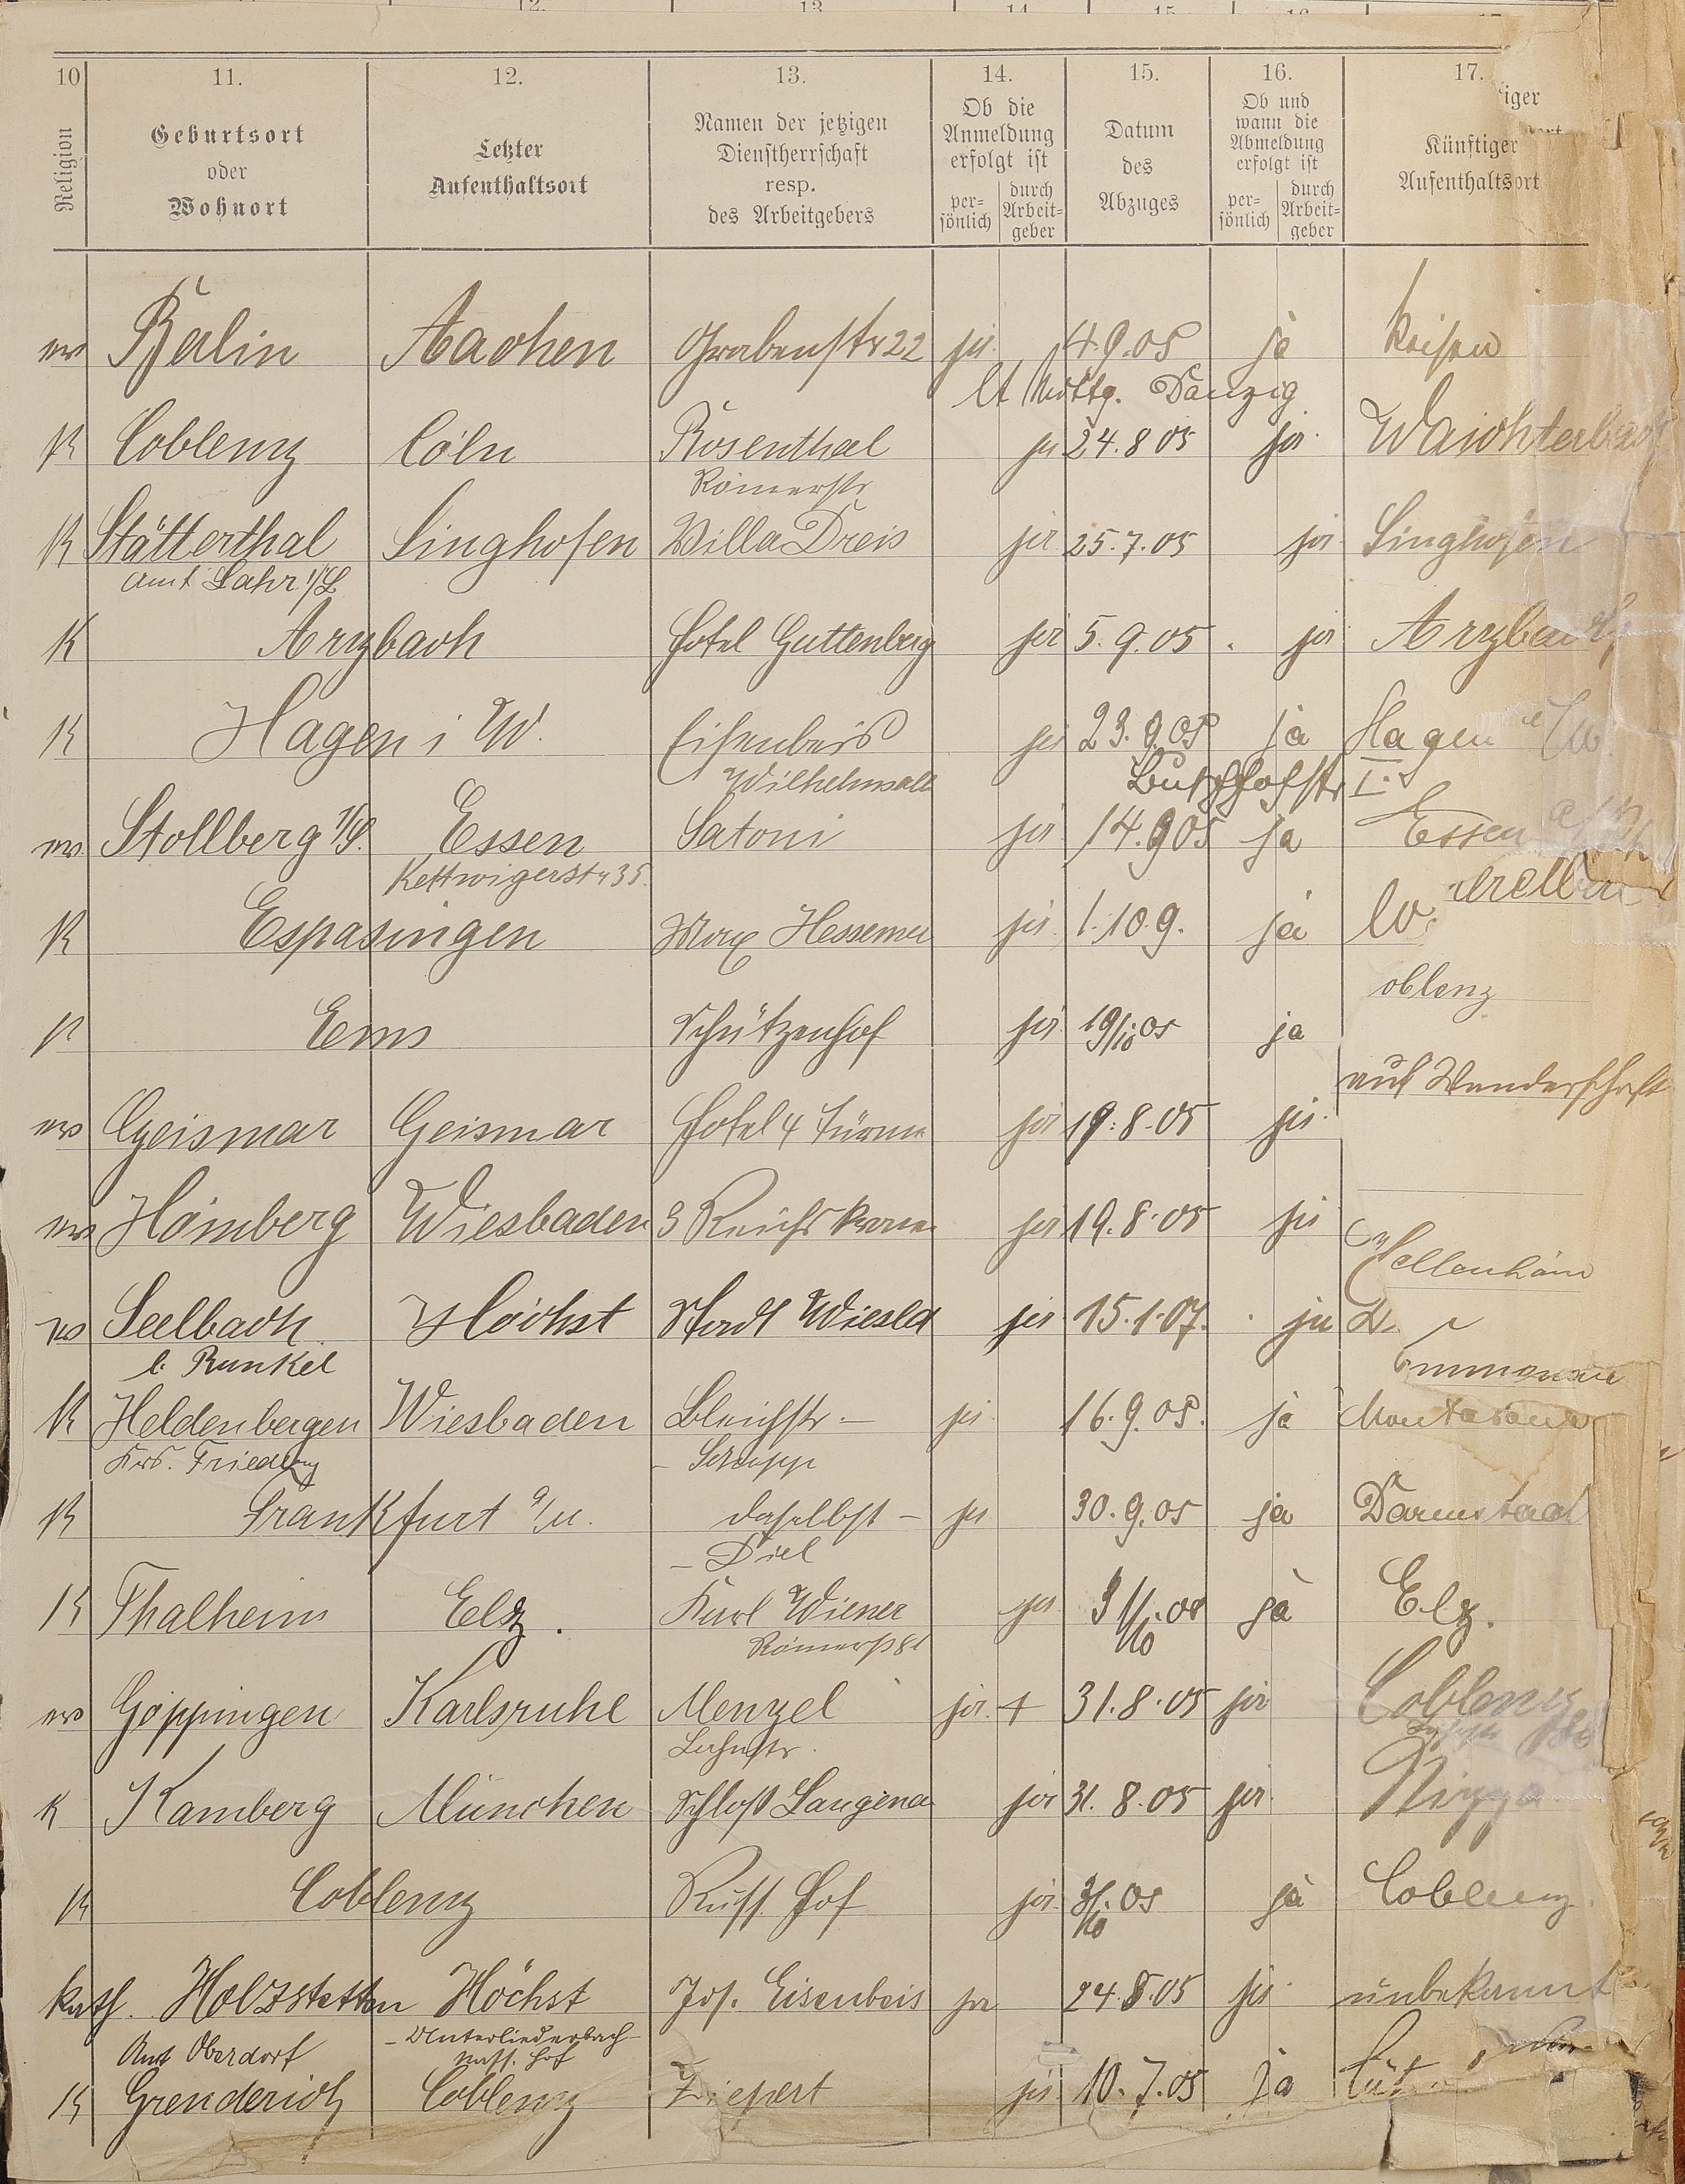 10 11. 12. 13. 14. 15. 16. 17.
Religion
Geburtsort oder Wohnort
Letzter Aufenthaltsort
Namen der jetzigen Dienstherrschaft resp. des Arbeitgebers
Ob die Anmeldung erfolgt ist
persönlich
durch Arbeitgeber
Datum des Abzuges
Ob und wann die Abmeldung erfolgt ist
persönlich
durch Arbeitgeber
Künftiger Aufenthaltsort
ev Berlin Aachen Grabenstr 22 ja 4.9.05 ja Reisen
lt Danzig
K Coblenz Cöln Rosenthal ja 24.8.05 ja
Römerstr
K Stätterthal Singhofen Villa Dreis ja 25.7.05 ja Singhofen
Amt Lahr
K Arzbach Hotel Guttenberg ja 5.9.05 ja Arzbach
K Hagen i W. Eisenbeis ja 23.9.05 ja Hagen
Wilhelmsall
ev. Stollberg Essen Satoni ja 14.9.05 ja Essen
Kettwigerstr 35.
K Espasingen Max Hessemer ja 1.10.9. ja
oblenz
K Ems Schützenhof ja 19/10 05 ja
auf Wanderschaft
ev Geismar Geismar Hotel 4 Türme ja 19.8.05 ja
ev Homberg Wiesbaden 3 Reichskronen ja 19.8.05 ja
ev Seelbach Höchst Stadt Wiesbd ja 15.1.07. ja
b. Runkel
K Heldenbergen Wiesbaden Bleichstr. ja 16.9.05. ja Montabaur
Krs. Friedbg
K Frankfurt a/M. daselbst ja 30.9.05 ja Darmstadt
Diel
K Thalheim Elz. Karl Wiener ja 31/10 05 ja Elz.
Römerst 81
ev Göppingen Karlsruhe Menzel ja + 31.8.05 ja Coblenz
Lahnstr.
K Kamberg München Schloß Langenau ja 31.8.05 ja Nizza
K Coblenz Russ. Hof ja 31/10 05 ja Coblenz.
kath. Holzstetten Höchst Jos. Eisenbeis ja 24.8.05 ja unbekannt
Amt Oberdorf Unterliederbach
Nass. Hof
K Grenderich Coblenz Ziepert ja 10.7.05 ja